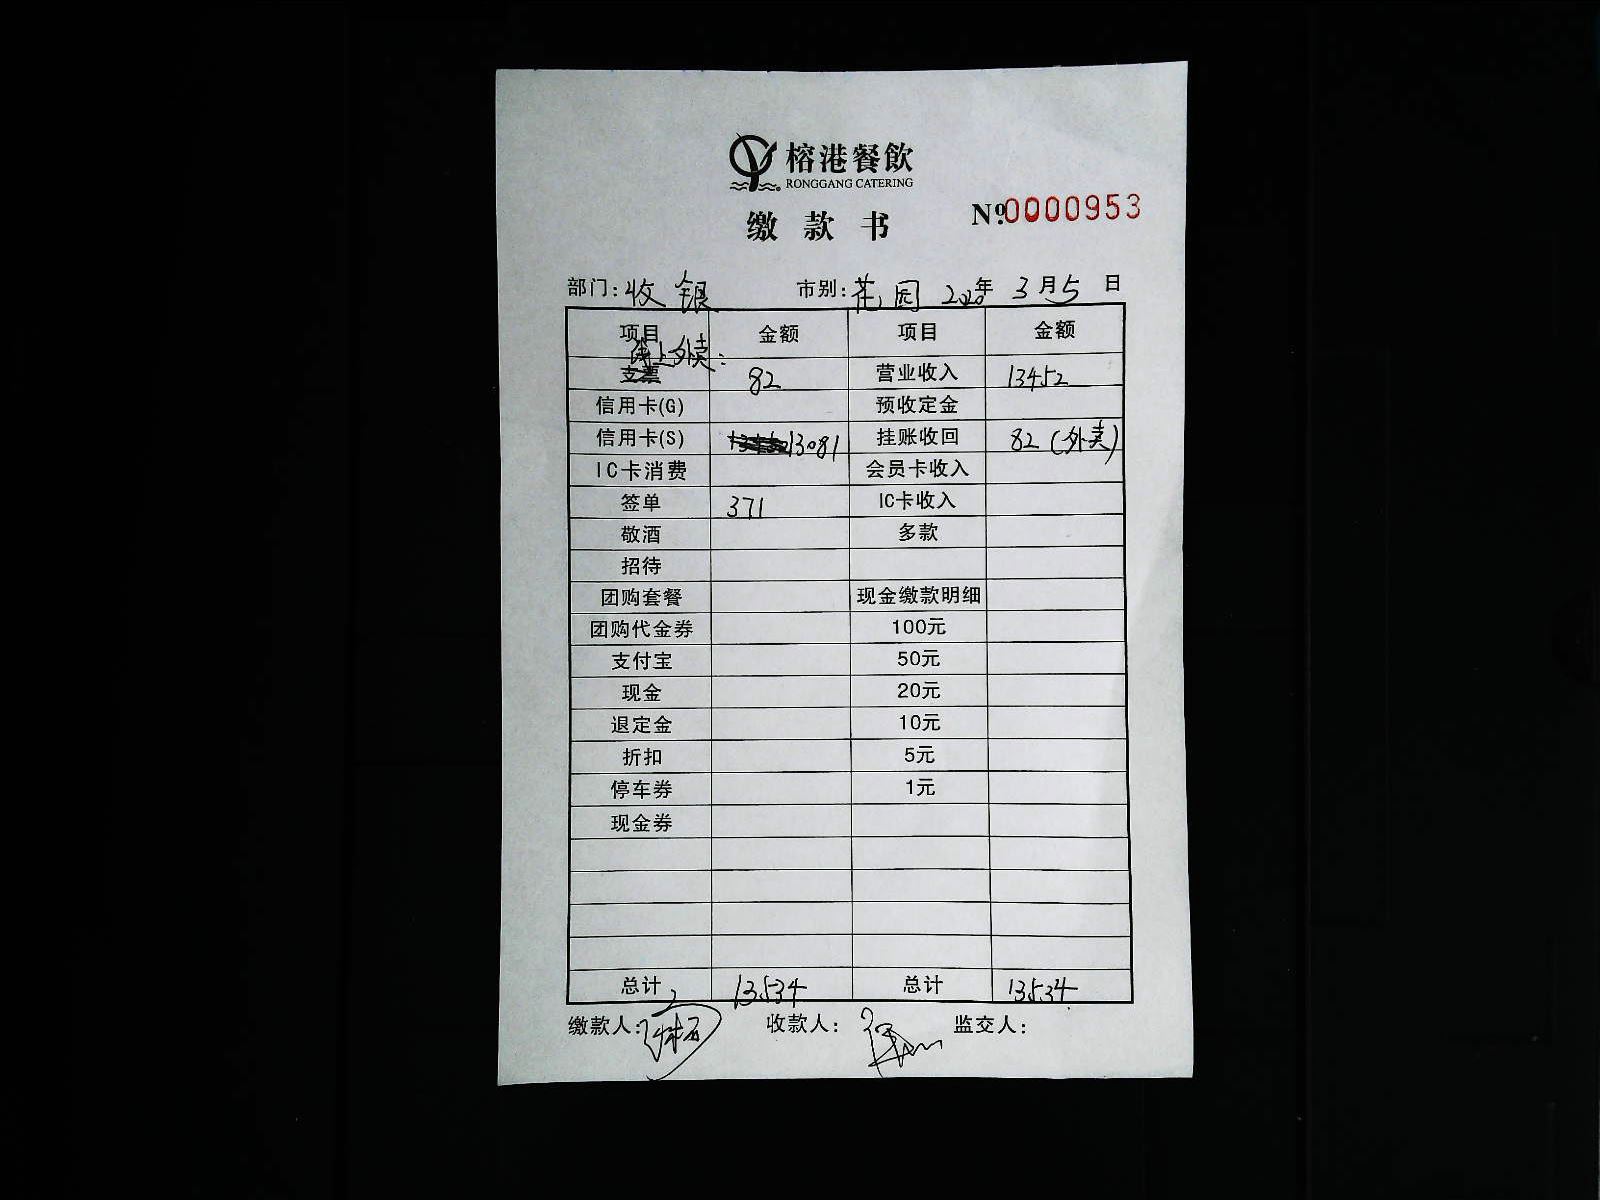 榕港餐飲
RONGGANG CATERING
缴款书 Nº.0000953
部门:收银 市别:花园 2020年3月5日
项目 金额 项目 金额
线上外卖:
支票 82 营业收入 13452
信用卡(G) 预收定金
信用卡(S) 13081 挂账收回 82(外卖)
IC卡消费 会员卡收入
签单 371 IC卡收入
敬酒 多款
招待
团购套餐 现金缴款明细
团购代金券 100元
支付宝 50元
现金 20元
退定金 10元
折扣 5元
停车券 1元
现金券
总计 13534 总计 13534
缴款人: 收款人: 监交人: